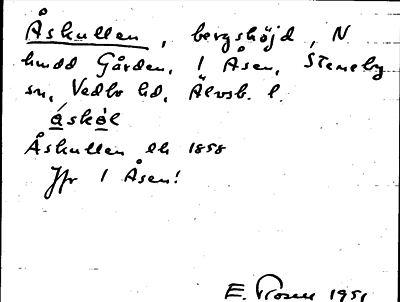 Åskullen, bergshöjd, N
hmdd Gården, 1 Åsen, Steneby
sn, Vedbo hd, Älvsb. l.
áskòl
Åskullen Ek 1858
Jfr 1 Åsen!
E. Rosen 1951